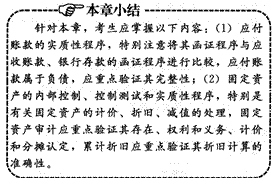 本章小结
针对本章，考生应掌握以下内容：(1) 应付
账款的实质性程序，特别注意将其函证程序与应
收账款、银行存款的函证程序进行比较，应付账
款属于负债，应重点验证其完整性；(2) 固定资
产的内部控制、控制测试和实质性程序，特别是
有关固定资产的计价、折旧、减值的处理，固定
资产审计应重点验证其存在、权利和义务、计价
和分摊认定，累计折旧应重点验证其折旧计算的
准确性。